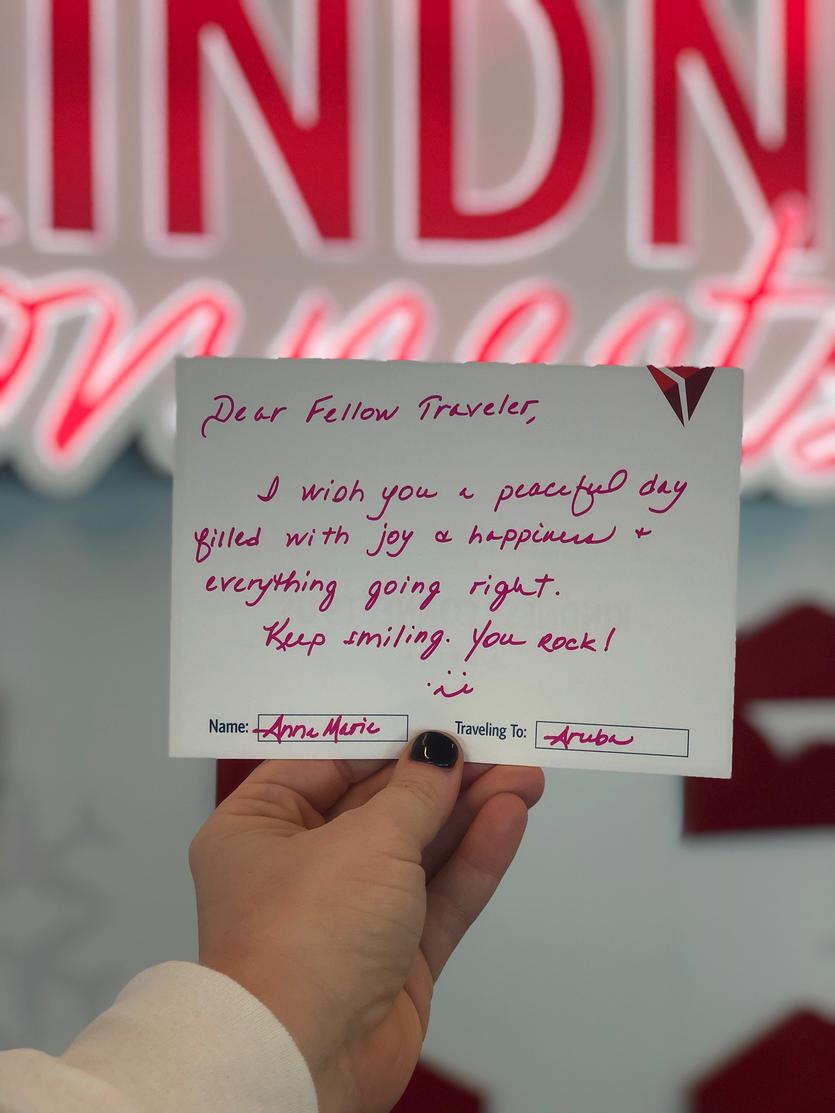 INDN
onnects
Dear Fellow Traveler,
I wish you a peaceful day
filled with joy & happiness +
everything going right.
Keep smiling. You Rock!
Name: Anna Marie
Traveling To: Aruba